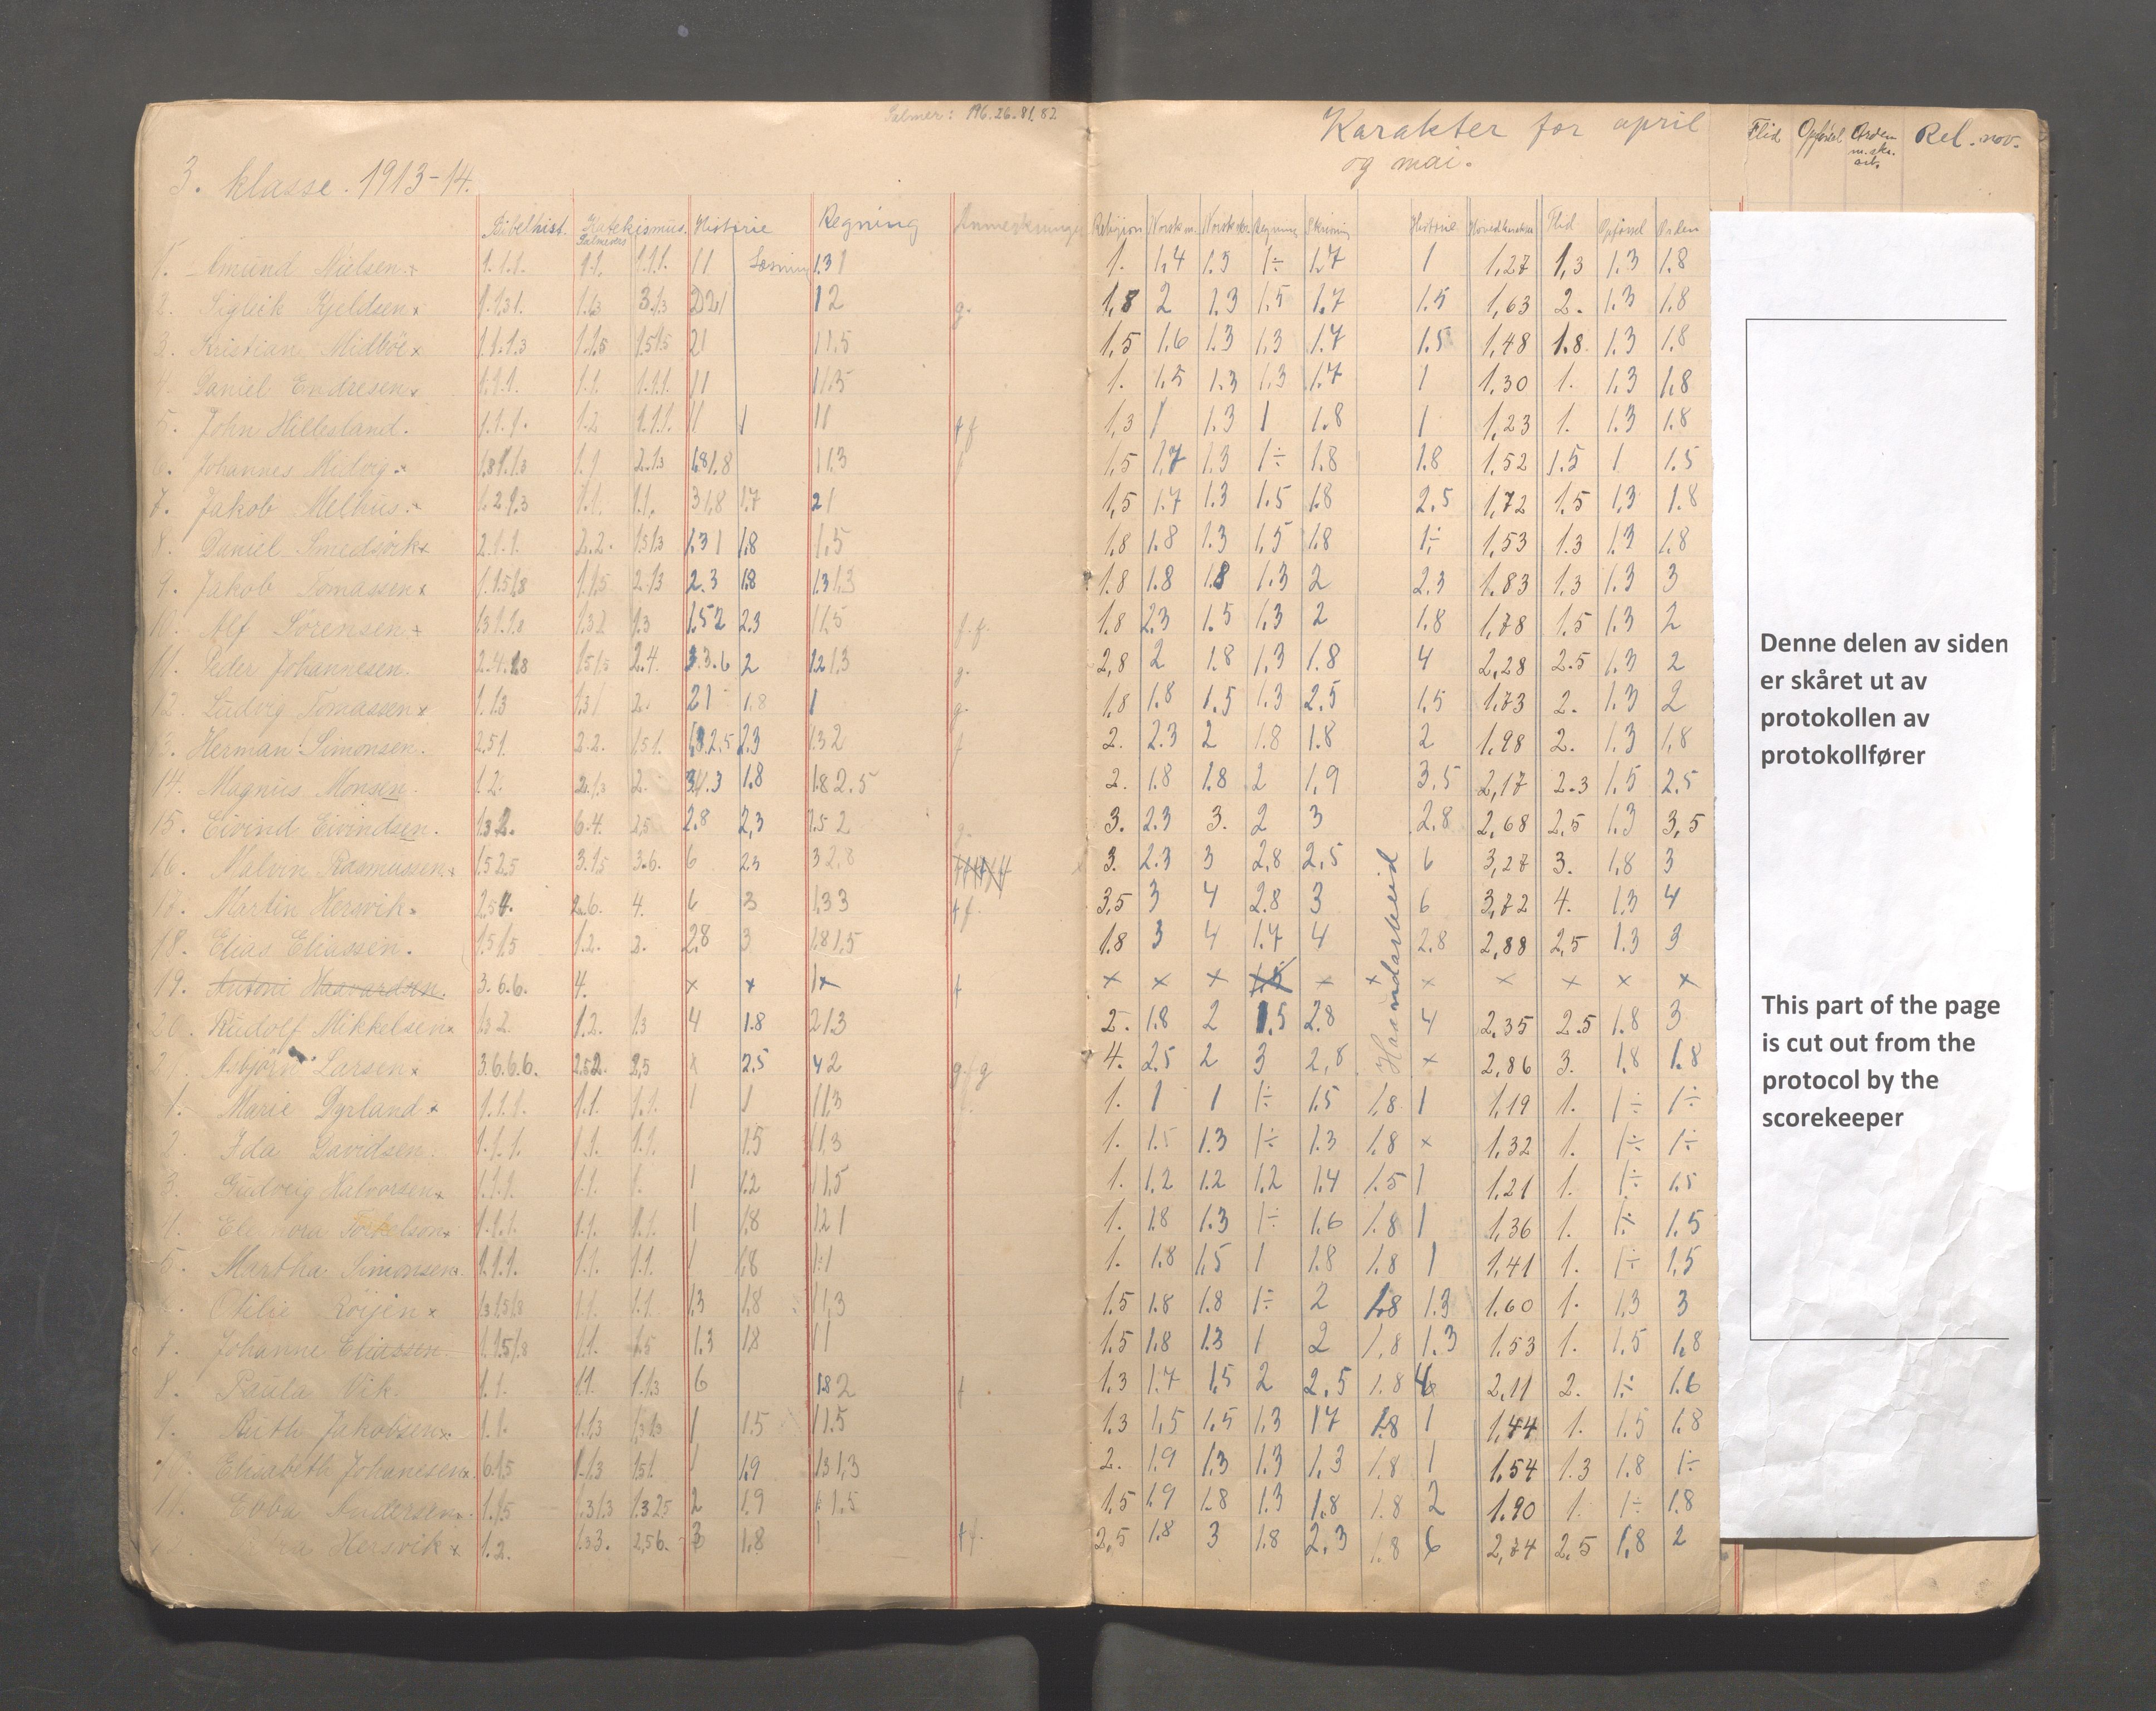 Salmer: 196.26.81.82
3. klasse. 1913-14.
Bibelhist. Katekismus. Historie Regning Anmerkninger
Salmevers
Læsning
1. Amund Nielsen x 1.1.1. 1.1. 1.1.1. 1 1 1.3 1
2. Kjeldsen x 1.1.3 1. 1.1.3 3.1.3 2 2 1 1 2 g.
3. Kristian Midbøe x 1.1.1.3 1.1.5 1.5 1.5 2 1 1 1.5
4. Daniel Endresen x 1.1.1. 1.1. 1.1.1. 1 1 1 1.5
5. John Hillesland. 1.1.1. 1.2 1.1.1. 1 1 1 1 1 f
6. Johannes Midvig x 1.8 1.1.3 1.1 2.1.3 1.8 1.8 1 1.3 f
7. Jakob Melhus. x 1.2.1.3 1.1. 1.1. 3 1.8 1.7 2 1
8. Daniel Smedsvik x 2.1.1. 2.2. 1.5 1.3 1.3 1 1.8 1.5
9. Jakob Tomassen x 1.1.5 1.8 1.1.5 2.1.3 2.3 1.8 1.3 1.3
10. Alf Sørensen x 1.3 1.1.8 1.3 2 1.3 1.5 2 2.3 1 1.5 f.f.
11. Peder Johannesen. 2.4.1.8 1.5 1.5 2.4. 3.3.6 2 1.2 1.3 g.
12. Ludvig Tomassen x 1.1.3 1.3 1 2. 2 1 1.8 1 g.
3. Herman Simonsen. 2.5 1. 2.2. 1.5 1. 1.8 2.5 2.3 1.3 2 f
14. Magnus Monsen. 1.2. 2.1.3 2. 3 1.3 1.8 1.8 2.5
15. Eivind Eivindsen. 1.3 2. 6.4. 2.5 2.8 2,3 1.5 2 g.
16. Malvin Rasmussen x 1.5 2.5 3.1.5 3.6. 6 2.3 3 2,8
17. Martin Hersvik x 2.5 4. 2.6. 4. 6 3 1.3 3 f.
18. Elias Eliassen. 1.5 1.5 1.2. 2. 2.8 3 1.8 1.5
19. Antoni Haavardsen. 3.6.6. 4. x x 1 x
20. Rudolf Mikkelsen x 1.3 2. 1.2. 1.3 4 1.8 2 1.3
21. Asbjørn Larsen x 3.6.6.6. 2.5 2. 2,5 x 2.5 4 2 g f g
1. Marie Dyrland x 1.1.1. 1.1. 1.1. 1 1 1 1.3
2. Ida Davidsen. 1.1.1. 1.1. 1.1. 1.5 1 1.3
3. Gudveig Halvorsen x 1.1.1. 1.1. 1. 1 1.2 1 1.5
4. Elenora Torkelson x 1.1.1. 1.1. 1.1. 1 1.8 1.2 1
5. Martha Simonsen x 1.1.1. 1.1. 1.1. 1 1.8 1 1
Otilie x 1.3 1.5 1.8 1.1. 1.1. 1.3 1.8 1 1.3
7. Johanne Eliassen 1.1.5 1.8 1.1. 1.5 1.3 1.8 1 1
8. Paula Vik. 1.1. 1.1. 1.1.3 6 1.8 2
9. Ruth Jakobsen x 1.1. 1.1.3 1.3 1.3 1 1.5 1 1.5
10. Elisabeth Johanesen x 6.1.5 1.1.3 1.5 1. 1 1.9 1.3 1.3
11. Andersen. 1.1.5 1.3 1.3 1.3 2.5 2 1.9 1.5
Hersvik x 1.2. 1.3 3. 2,5 6. 3 1.8 1 f.
Karakter for april
og mai.
Religion Norsk m. Norsk skr. Regning Skrivning Historie Hovedkarakter Flid Opførsel Orden
Haandarbeid
1. 1,4 1.3 1÷ 1.7 1 1,27 1,3 1.3 1.8
1,8 2 1.3 1.5 1.7 1.5 1,63 2. 1.3 1.8
1,5 1.6 1.3 1,3 1.7 1.5 1,48 1.8. 1.3 1.8
1. 1.5 1.3 1.3 1.7 1 1,30 1. 1,3 1,8
1,3 1 1.3 1 1.8 1 1,23 1. 1.3 1.8
1,5 1.7 1.3 1÷ 1.8 1.8 1,52 1.5 1 1.5
1,5 1.7 1.3 1.5 1.8 2.5 1,72 1.5 1,3 1.8
1.8 1.8 1.3 1.5 1.8 1÷ 1,53 1.3 1.3 1.8
1.8 1.8 1.8 1.3 2 2.3 1.83 1.3 1.3 3
1.8 2.3 1.5 1.3 2 1.8 1,78 1.5 1.3 2
2,8 2 1.8 1,3 1.8 4 2,28 2.5 1.3 2
1.8 1.8 1.5 1.3 2.5 1.5 1.73 2. 1.3 2
2. 2.3 2 1.8 1.8 2 1.98 2. 1.3 1,8
2. 1.8 1.8 2 1,9 3.5 2,17 2.3 1.5 2.5
3. 2.3 3. 2 3 2.8 2,68 2.5 1.3 3,5
3. 2.3 3 2.8 2,5 6 3,27 3. 1.8 3
3,5 3 4 2.8 3 6 3,72 4. 1.3 4
1.8 3 4 1.7 4 2.8 2,88 2,5 1.3 3
x x x 1.5 x x x x x x x
2. 1.8 2 1.5 2.8 4 2.35 2.5 1.8 3
4. 2.5 2 3 2,8 x 2,86 3. 1.8 1.8
1. 1 1 1÷ 1.5 1.8 1 1,19 1. 1÷ 1÷
1. 1.5 1.3 1÷ 1.3 1.8 x 1,32 1. 1÷ 1÷
1. 1,2 1.2 1,2 1.4 1.5 1 1.21 1. 1÷ 1.5
1. 1.8 1.3 1÷ 1.6 1.8 1 1,36 1. 1÷ 1.5
1. 1.8 1,5 1 1.8 1.8 1 1,41 1. 1÷ 1,5
1.5 1.8 1.8 1÷ 2 1.8 1.3 1.60 1. 1.3 3
1.5 1.8 1.3 1 2 1,8 1.3 1.53 1. 1.5 1.8
1.3 1.7 1,5 2 2.5 1.8 6 2,11 2. 1÷ 1.6
1.3 1,5 1.5 1.3 1.7 1.8 1 1,44 1. 1.5 1.8
2. 1.9 1.3 1.3 1.3 1.8 1 1.54 1.3 1.8 1÷
1.5 1.9 1.8 1.3 1.8 1.8 2 1.90 1. 1÷ 1.8
2,5 1.8 3 1.8 2.3 1.8 6 2,74 2,5 1,8 2
Flid Opførsel Orden m. skr. arb. Rel. nov.
Denne delen av siden
er skåret ut av
protokollen av
protokollfører
This part of the page
is cut out from the
protocol by the
scorekeeper